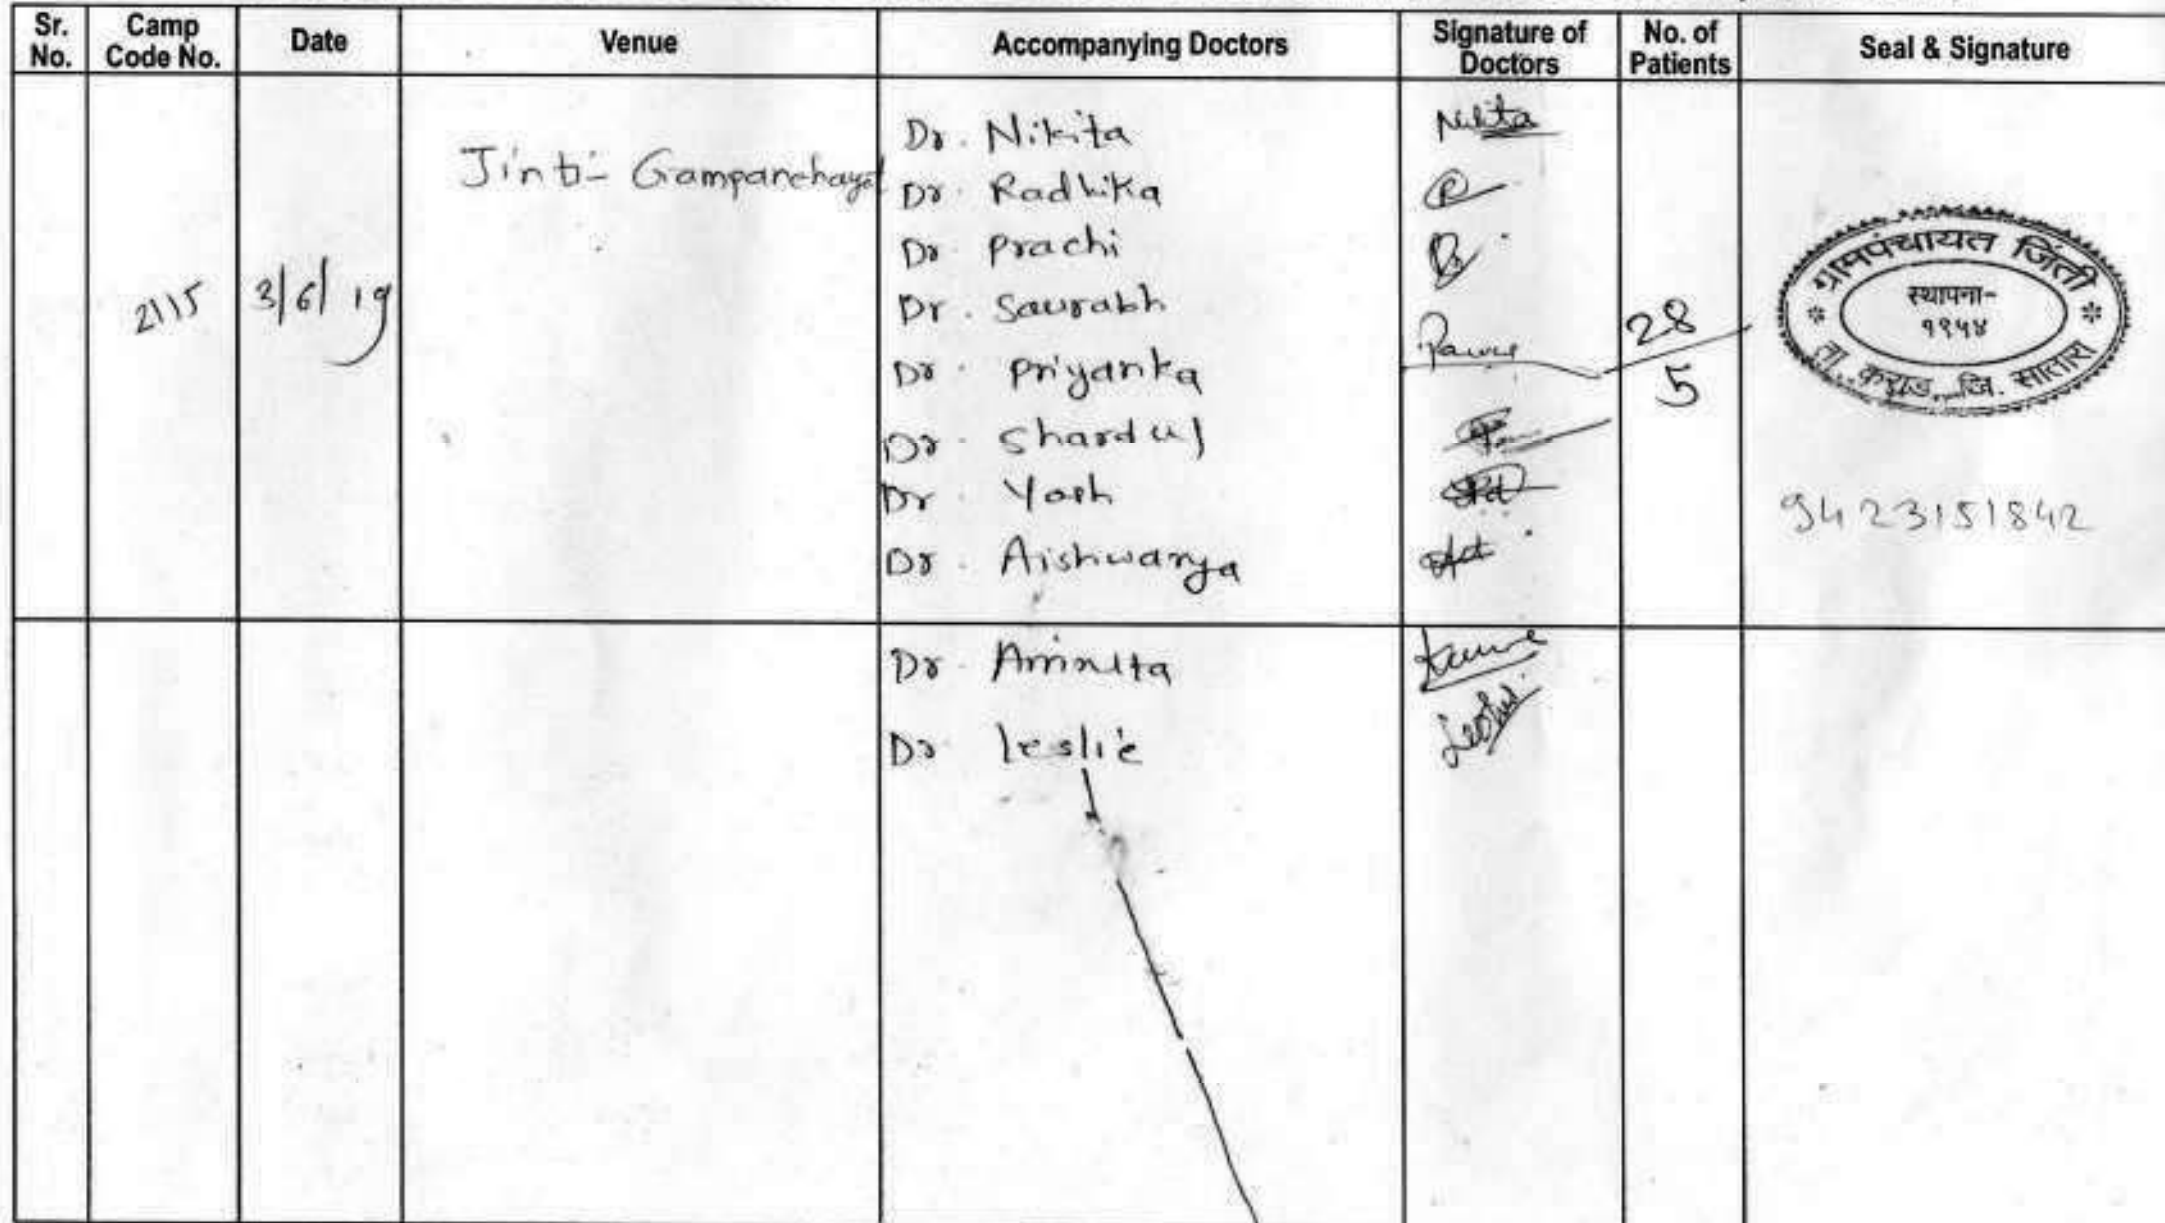 Sr. No. Camp Code No. Date Venue Accompanying Doctors Signature of Doctors No. of Patients Seal & Signature
2115 3/6/19 Jinti- Gampanchayat
Dr. Nikita Nikita
Dr. Radhika
Dr. Prachi
Dr. Saurabh
Dr. Priyanka
Dr. Shardul
Dr. Yash
Dr. Aishwarya
28
5
ग्रामपंचायत जिंती
स्थापना-
१९५४
ता. कराड, जि. सातारा
9423151842
Dr. Amruta
Dr. leslie